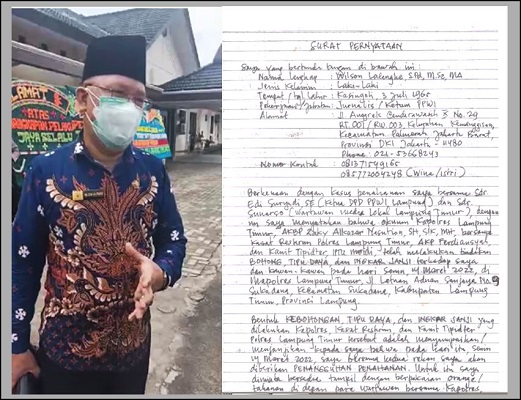 AMAT &
ATAS
JAYA SELALU
SURAT PERNYATAAN
Saya yang bertanda tangan di bawah ini :
Nama Lengkap : Wilson Lalengke, S.Pd, M.Sc, MA
Jenis Kelamin : Laki-Laki
Tempat/tgl lahir : Kasingoh, 3 Juli 1965
Pekerjaan/Jabatan : Jurnalis / Ketum PPWI
Alamat : Jl Anggrek Cendrawasih 3 No. 29
RT.001/RW.003, Kelurahan Kemanggisan,
Kecamatan Palmerah, Jakarta Barat,
Provinsi DKI Jakarta - 11480
Phone : 021-53668243
Nomor Kontak : 081371549165
085772004248 (Wina/istri)
Berkenaan dengan kasus penahanan saya bersama Sdr.
Edi Suryadi SE (Ketua DPD PPWI Lampung) dan Sdr.
Sunarso (Wartawan media lokal Lampung Timur), dengan
ini saya menyatakan bahwa oknum Kapolres Lampung
Timur, AKBP Zaky Alkazar Nasution, SH, SIK, MH, bersama
Kasat Reskrim Polres Lampung Timur, AKP Ferdiansyah,
dan Kanit Tipidter, IPTU Meidi, telah melakukan tindakan
BOHONG, TIPU DAYA, dan INGKAR JANJI terhadap saya
dan kawan-kawan pada hari Senin, 14 Maret 2022, di
Mapolres Lampung Timur, Jl Letnan Adnan Sanjaya No. 9
Sukadana, Kecamatan Sukadana, Kabupaten Lampung
Timur, Provinsi Lampung.
Bentuk KEBOHONGAN, TIPU DAYA, dan INGKAR JANJI yang
dilakukan Kapolres, Kasat Reskrim, dan Kanit Tipidter
Polres Lampung Timur tersebut adalah menyampaikan/
menjanjikan kepada saya bahwa pada hari itu, Senin
14 Maret 2022, saya bersama kedua rekan saya akan
diberikan PENANGGUHAN PENAHANAN. Untuk itu saya
diminta bersedia tampil dengan berpakaian orange/
tahanan di depan para wartawan bersama Kapolres,